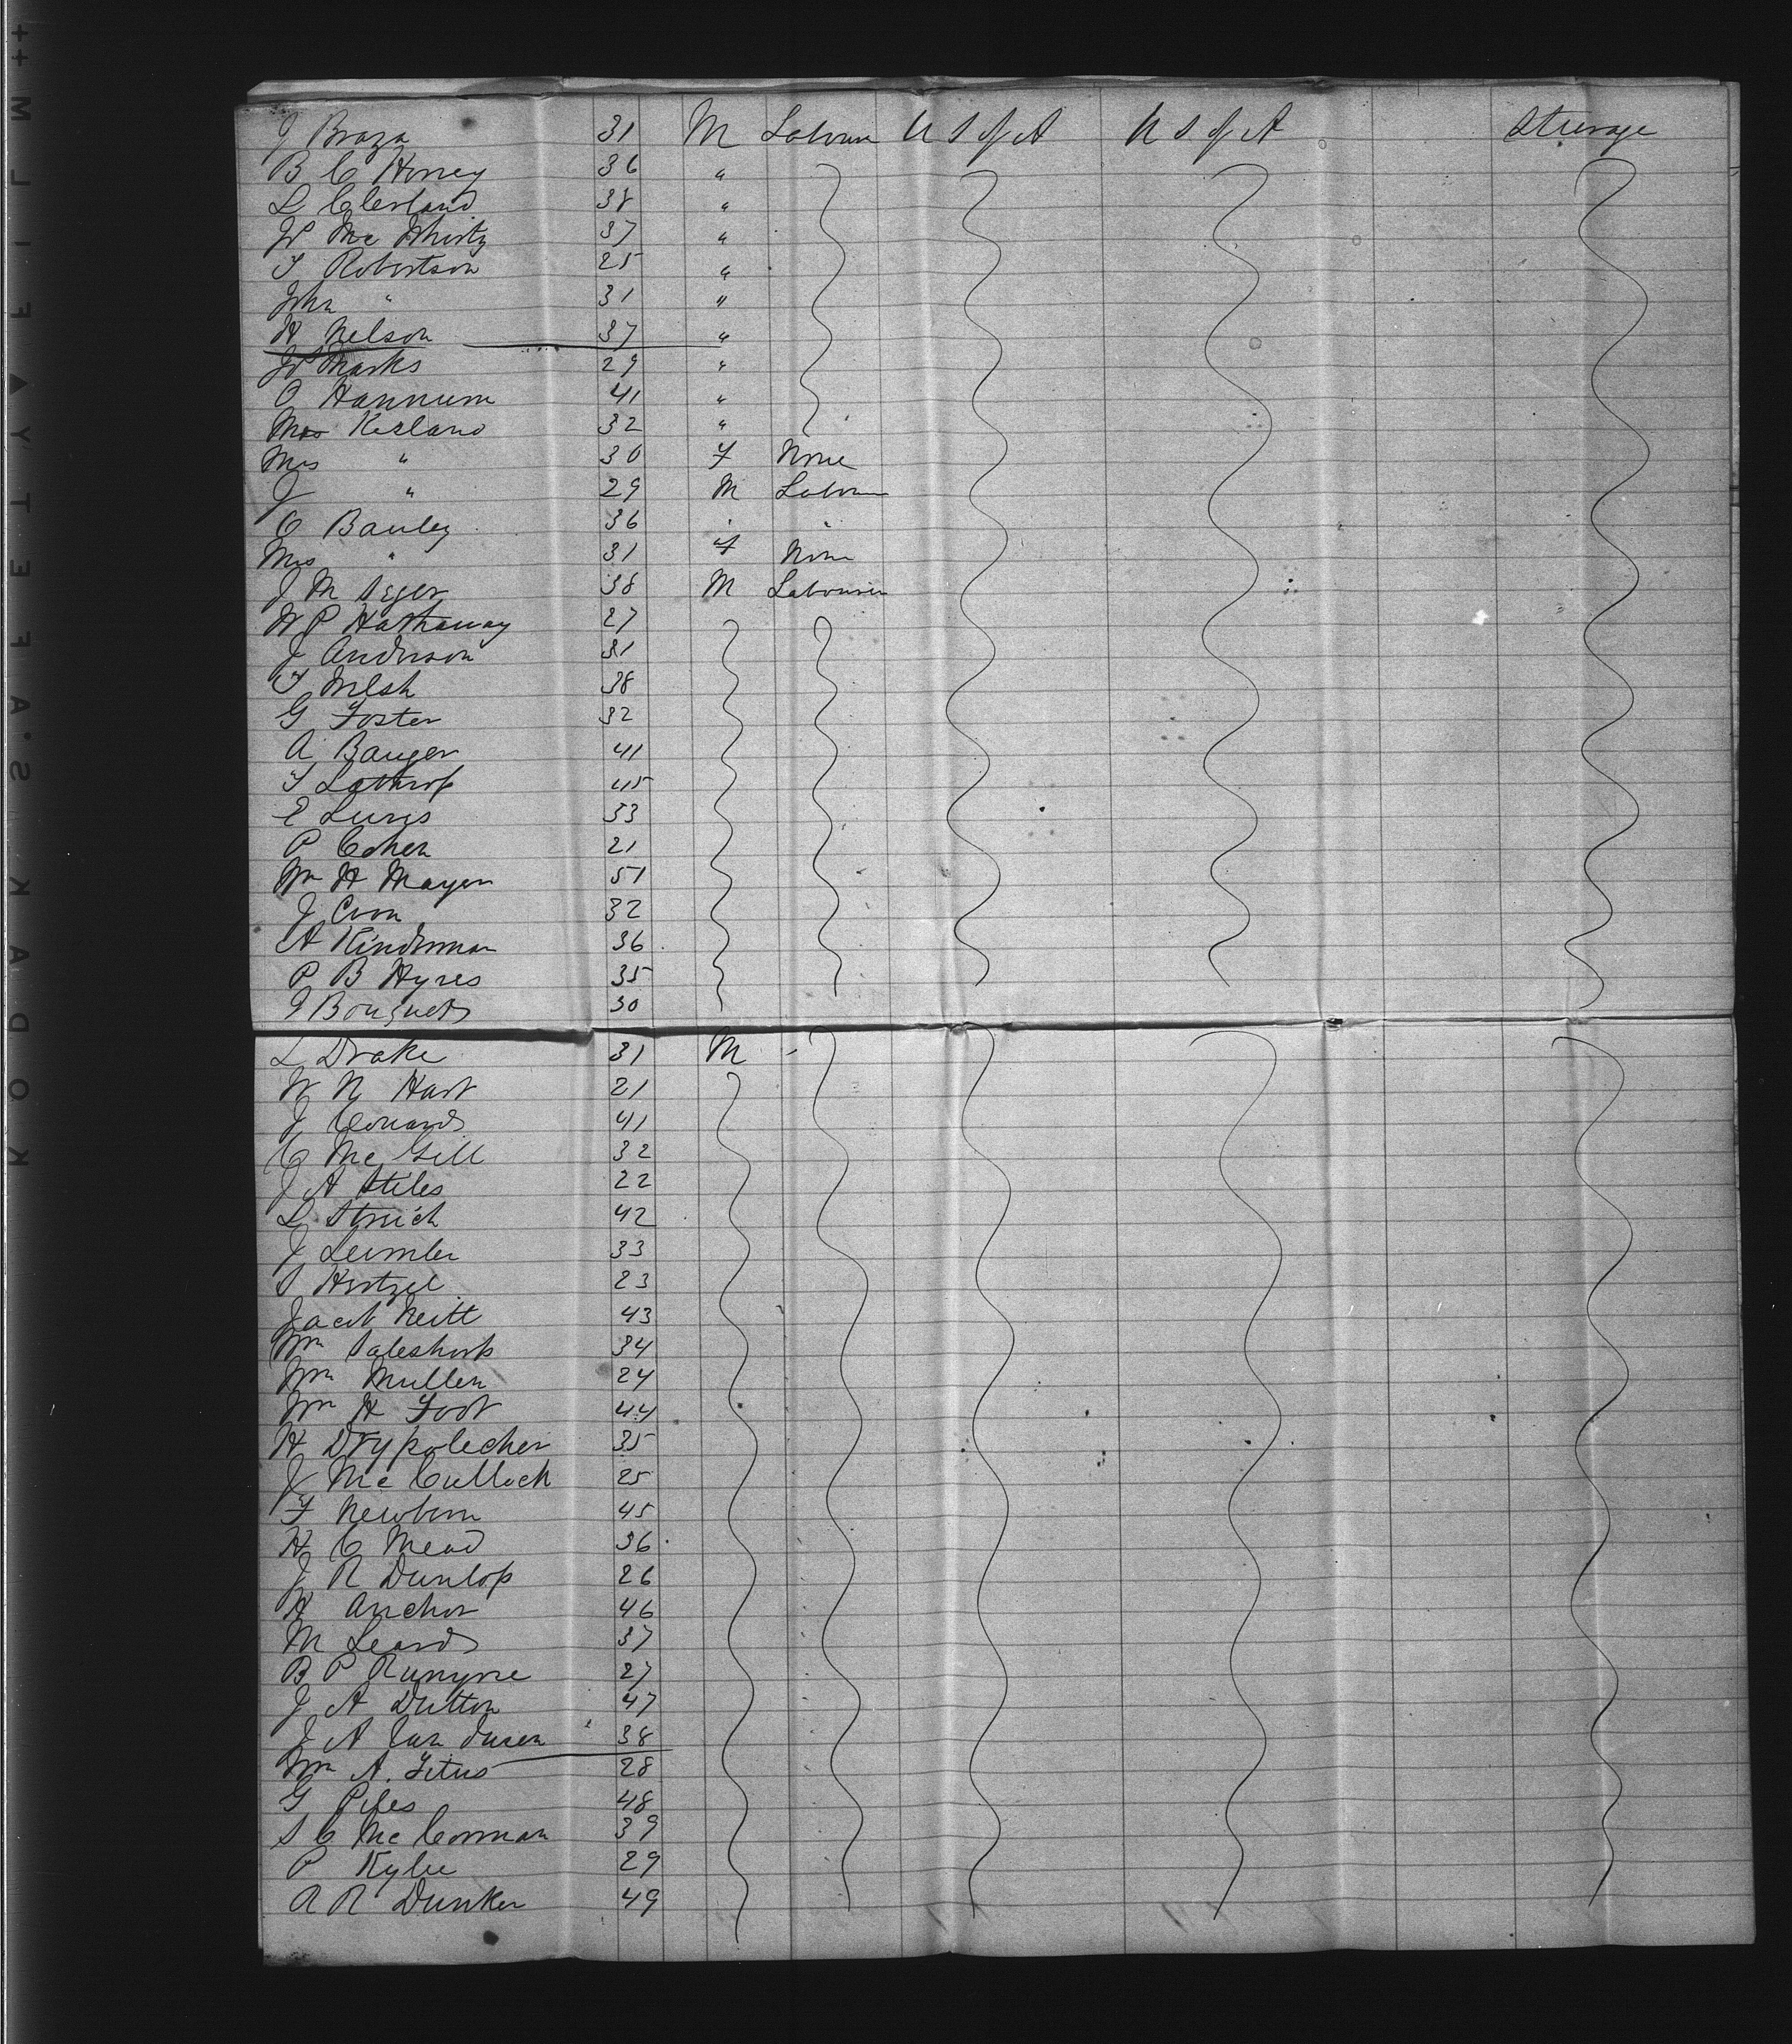 J Braza 31 M Labourer U S of A U S of A Steerage
B C Honey 36 "
L Cleveland 38 "
W Mc Whirty 37 "
T Robertson 25 "
John " 31 "
H Nelson 37 "
W Marks 29 "
O Hannum 41 "
Kesland 32 "
Mrs " 30 F None
J " 29 M Labourer
C Bauley 36 " "
Mrs " 31 F None
J M Seger 38 M Labourer
W P Hathaway 27
J Anderson 31
T Welsh 38
G Foster 32
A Banger 41
T Lathrop 45
E Lurgs 53
P Cohen 21
Wm H Mayer 51
J Coon 32
A Kinderman 36
P B Hyres 35
J Bouquets 30
L Drake 31 M
W N Hart 21
J Conards 41
C Mc Gill 32
J A Stiles 22
L Streich 42
J Leimler 33
S Hertzel 23
Jacob Neitt 43
Wm 34
Wm Mullen 24
Wm H Foot 44
H Drypolecher 35
J Mc Culloch 25
F Newborn 45
H C Mead 36
J R Dunlop 26
H Anchor 46
M Leards 37
B P Runyne 27
J A Dutton 47
J A Van Dusen 38
Wm A. Titus 28
G Piles 48
S C Mc Corman 39
P Kylee 29
A R Dunker 49
KODAK SAFETY FILM ++